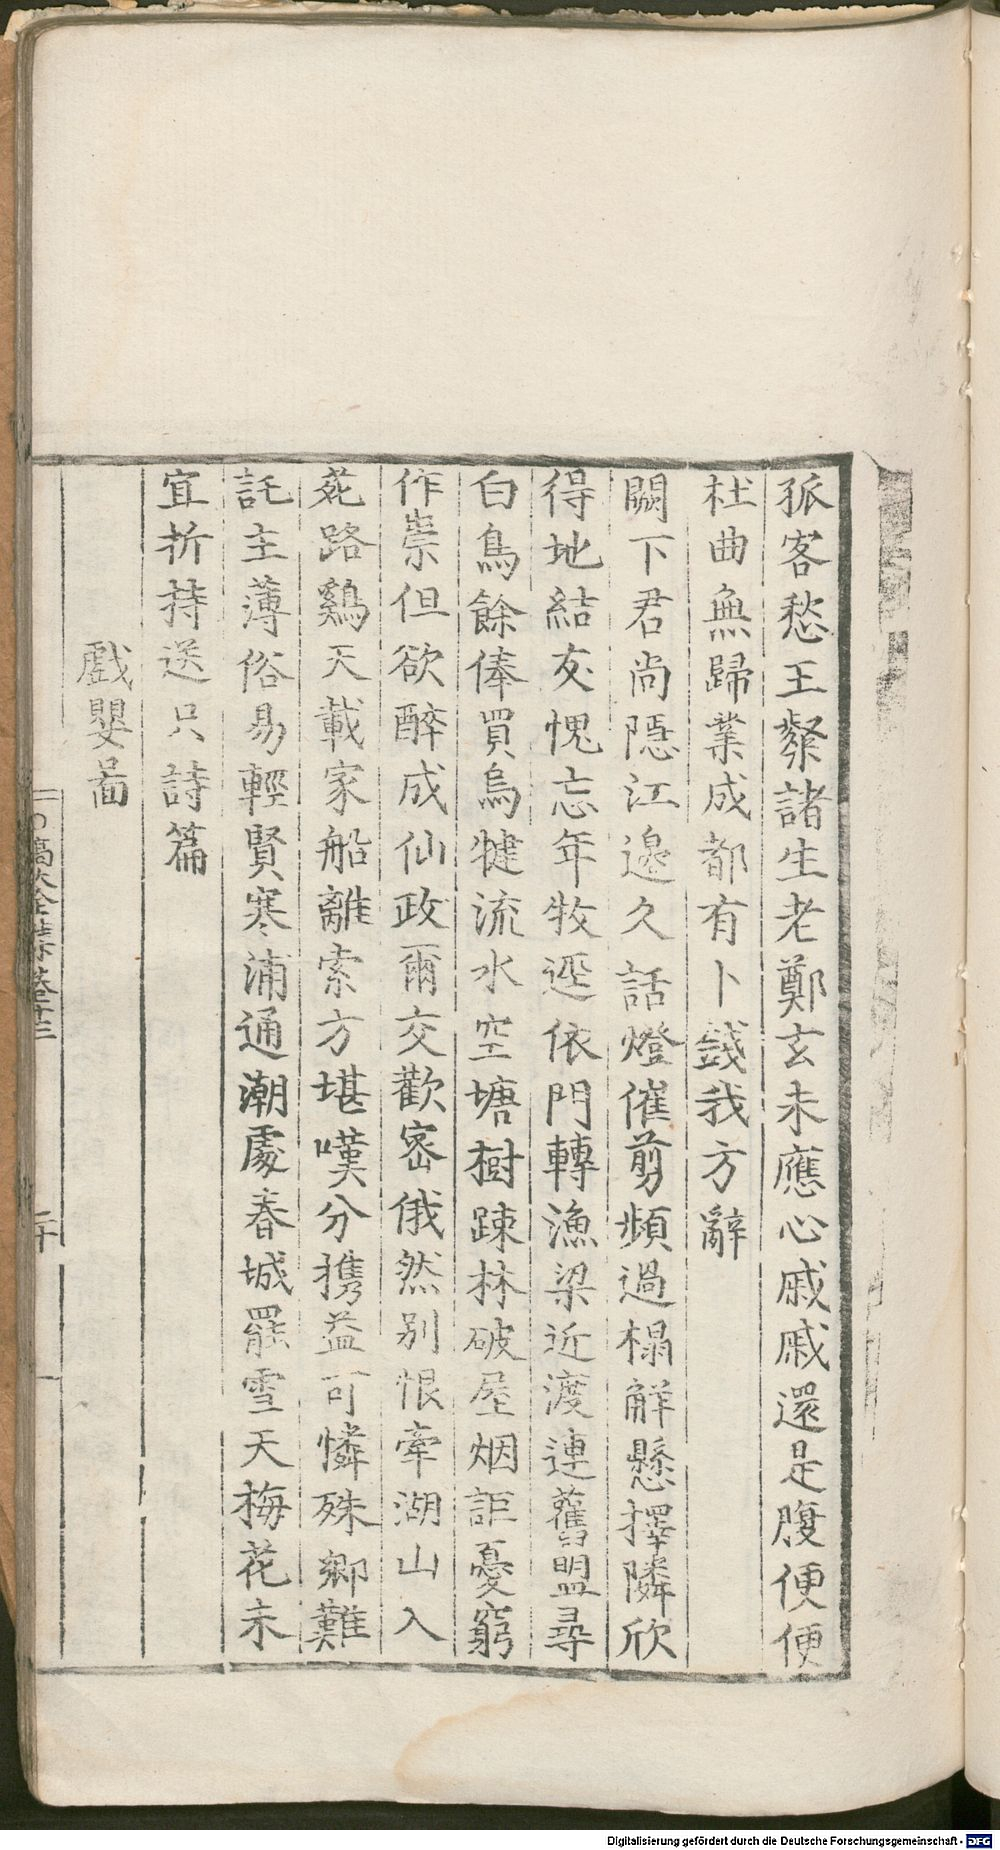 孤客愁王粲諸生老鄭玄未應心戚戚還是腹便便
杜曲無歸業成都有卜錢我方辭
闕下君尚隱江邊久話燈催剪頻過榻解懸擇隣欣
得地結友愧忘年牧逕依門轉漁梁近渡連舊盟尋
白鳥餘俸買烏犍流水空塘樹踈林破屋烟詎憂窮
作祟但欲醉成仙政爾交歡密俄然别恨牽湖山入
苑路鷄天載家船離索方堪嘆分携益可憐殊鄉難
託主薄俗易輕賢寒浦通潮處春城罷雪天梅花未
宜折持送只詩篇
戲嬰啚
高太全集卷十三
二十
Digitalisierung gefördert durch die Deutsche Forschungsgemeinschaft - DFG